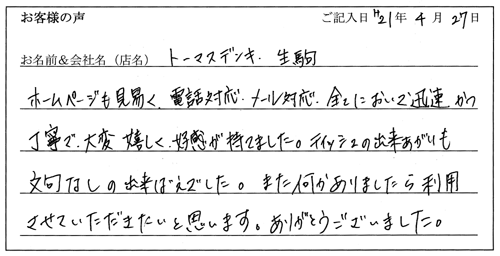 お客様の声 ご記入日 H21年 4月 27日
お名前＆会社名（店名） トーマスデンキ. 生駒
ホームページも見易く、電話対応、メール対応、全てにおいて迅速かつ
丁寧で、大変嬉しく、好感が持てました。ティッシュの出来あがりも
文句なしの出来ばえでした。また何かありましたら利用
させていただきたいと思います。ありがとうございました。